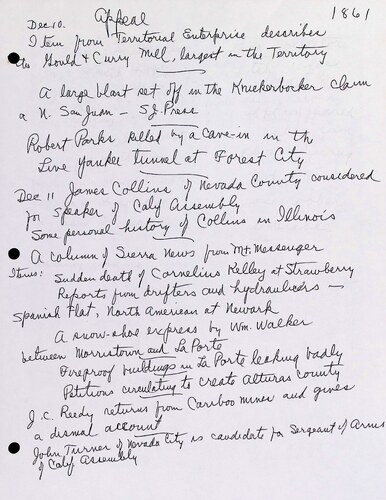 Appeal
1861
Dec 10.
Item from Territorial Enterprise describes
the Gould & Curry Mill, largest in the Territory
A large blast set off in the Knickerbocker claim
a N. San Juan – S.J. Press
Robert Parks killed by a cave-in in the
Live Yankee tunnel at Forest City
Dec 11 James Collins of Nevada County considered
for Speaker of Calif Assembly
Some personal history of Collins in Illinois
A column of Sierra News from Mt. Messenger
Items: Sudden death of Cornelius Kelley at Strawberry
Reports from drifters and hydraulicers –
Spanish Flat, North American at Newark
A snow-shoe express by Wm. Walker
between Morristown and La Porte
Fireproof buildings in La Porte leaking badly
Petitions circulating to create Alturas County
J.C. Reedy returns from Cariboo mines and gives
a dismal account
John Turner of Nevada City is candidate for Sergeant of Arms
of Calif Assembly